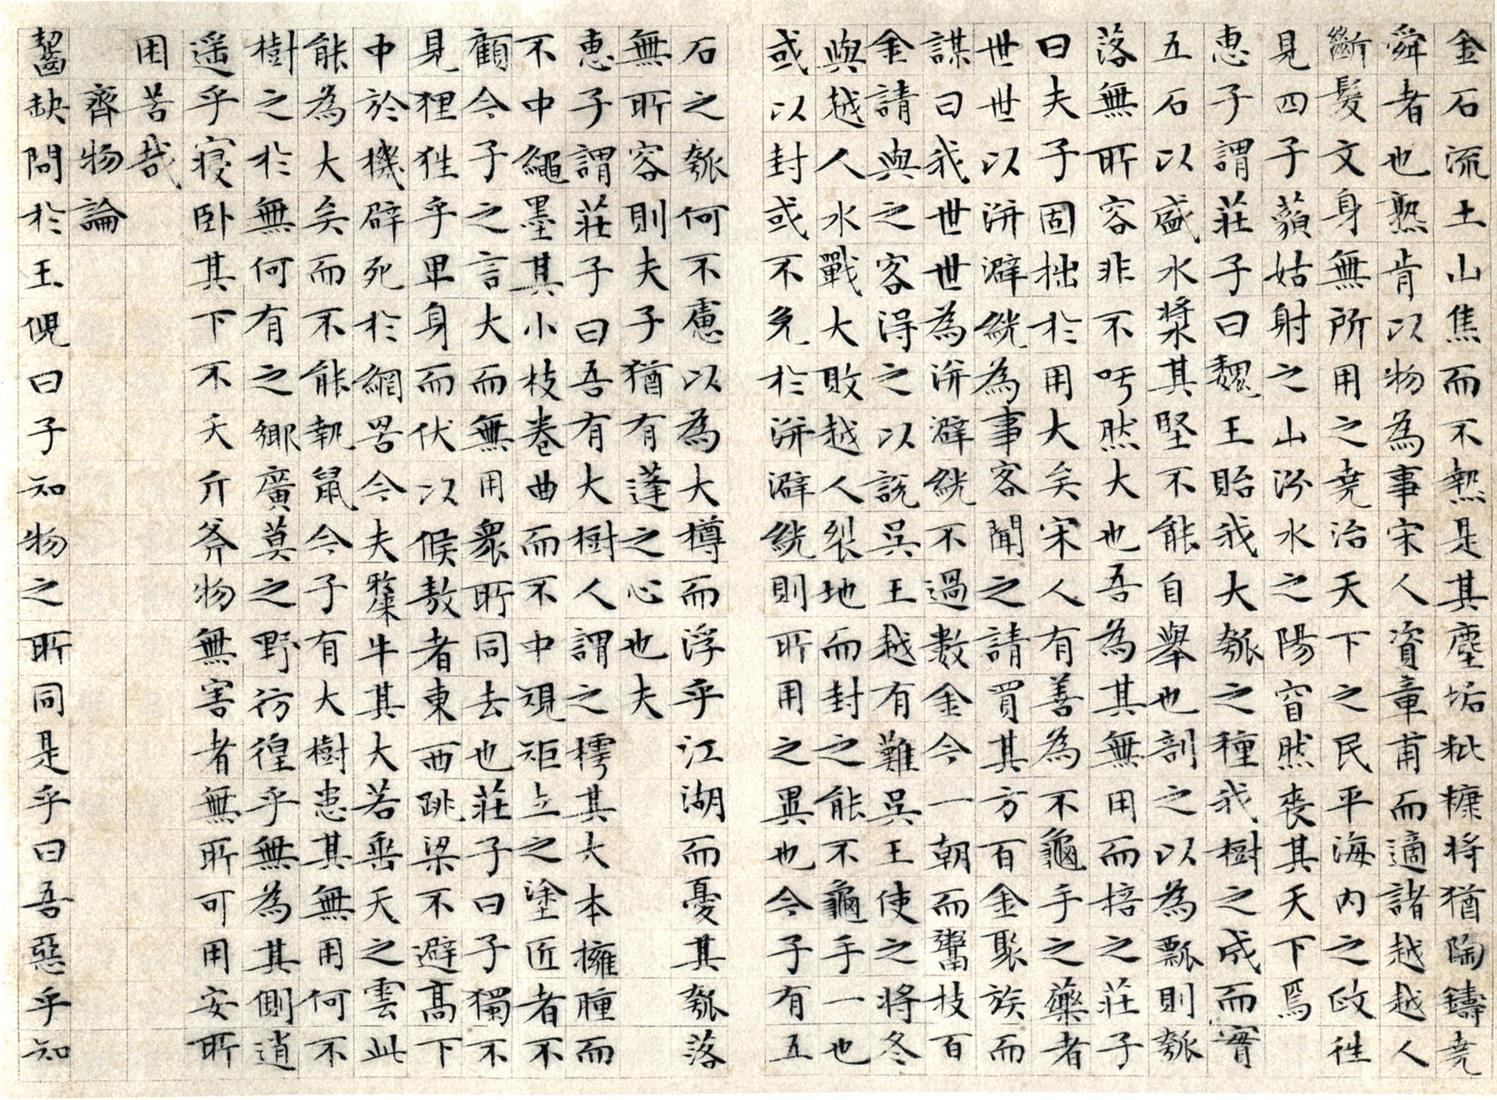 金石流土山焦而不熱是其塵垢粃糠將猶陶鑄堯
舜者也熟肯以物為事宋人資章甫而適諸越越人
斷髮文身無所用之堯治天下之民平海内之政徃
見四子藐姑射之山汾水之陽窅然喪其天下焉
惠子謂莊子曰魏王貽我大瓠之種我樹之成而實
五石以盛水漿其堅不能自舉也剖之以為瓢則瓠
落無所容非不呺然大也吾為其無用而掊之莊子
曰夫子固拙於用大矣宋人有善為不龜手之藥者
世世以洴澼絖為事客聞之請買其方百金聚族而
謀曰我世世為洴澼絖不過數金今一朝而鬻技百
金請與之客得之以說吳王越有難吳王使之將冬
與越人水戰大敗越人裂地而封之能不龜手一也
或以封或不免於洴澼絖則所用之異也今子有五
石之瓠何不慮以為大樽而浮乎江湖而憂其瓠落
無所容則夫子猶有蓬之心也夫
惠子謂莊子曰吾有大樹人謂之樗其大本擁腫而
不中繩墨其小枝卷曲而不中規矩立之塗匠者不
顧今子之言大而無用衆所同去也莊子曰子獨不
見狸狌乎卑身而伏以候敖者東西跳梁不避高下
中於機辟死於網罟今夫斄牛其大若垂天之雲此
能為大矣而不能執鼠今子有大樹患其無用何不
樹之於無何有之鄉廣莫之野彷徨乎無為其側逍
遥乎寢卧其下不夭斤斧物無害者無所可用安所
困苦哉
齊物論
齧缺問於王倪曰子知物之所同是乎曰吾惡乎知